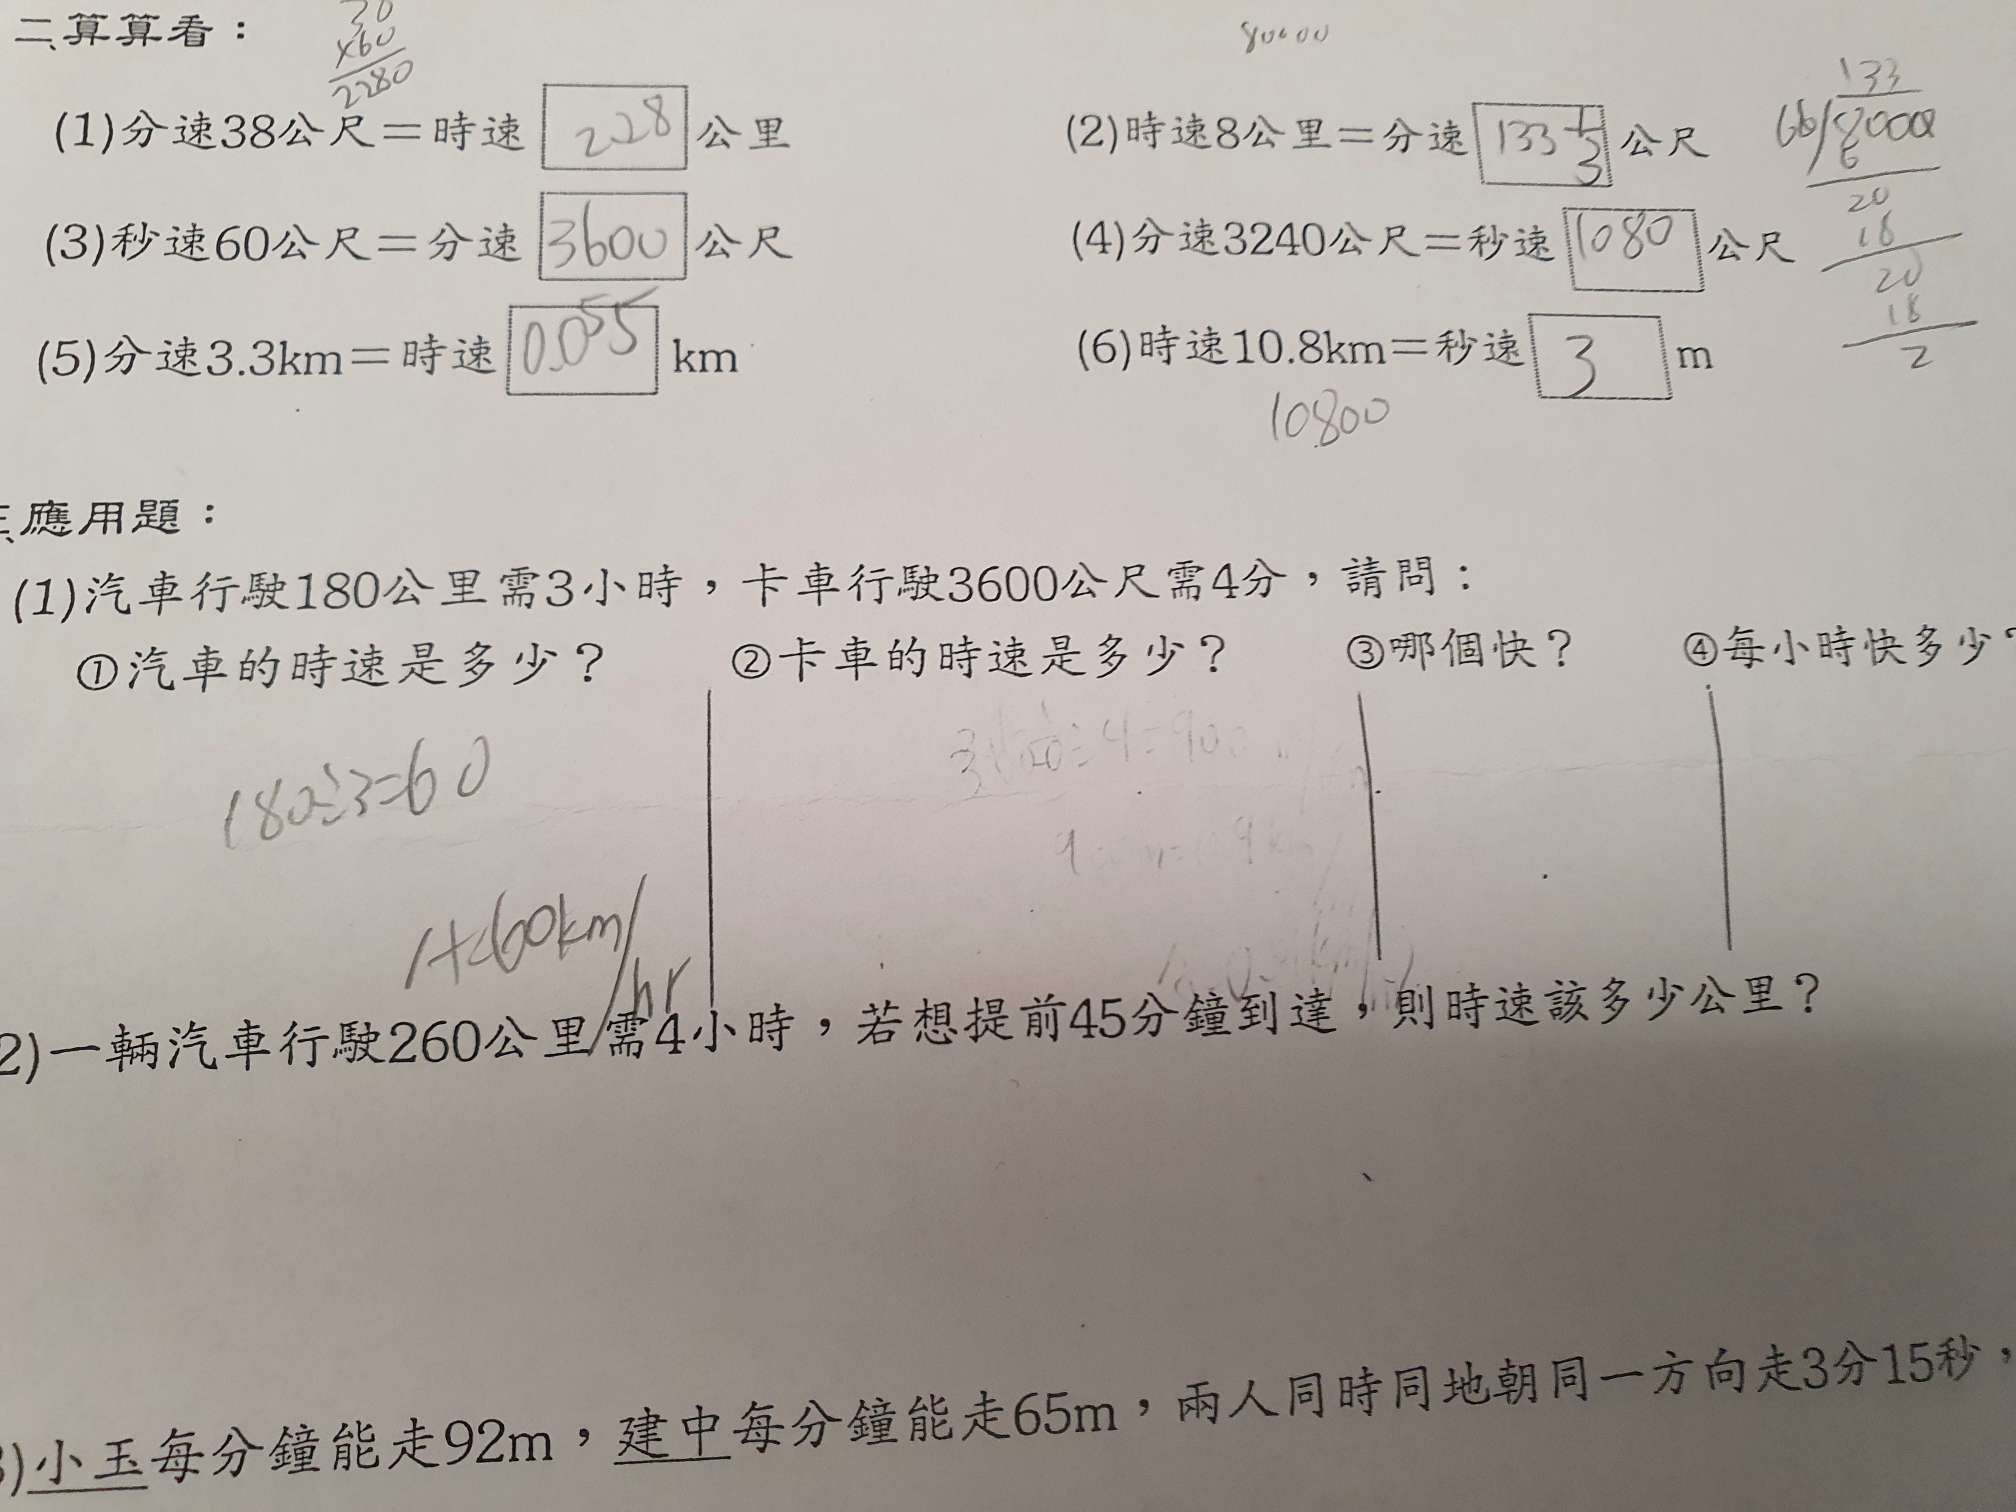 二、算算看：
38
×60
2280
80000
(1)分速38公尺＝時速 2.28 公里
(2)時速8公里＝分速 133 1/3 公尺
133
60/8000
6
20
18
20
18
2
(3)秒速60公尺＝分速 3600 公尺
(4)分速3240公尺＝秒速 1080 公尺
(5)分速3.3km＝時速 0.055 km
(6)時速10.8km＝秒速 3 m
10800
應用題：
(1)汽車行駛180公里需3小時，卡車行駛3600公尺需4分，請問：
①汽車的時速是多少？ ②卡車的時速是多少？ ③哪個快？ ④每小時快多少？
180÷3=60
A:60km/hr
2)一輛汽車行駛260公里需4小時，若想提前45分鐘到達，則時速該多少公里？
3)小玉每分鐘能走92m，建中每分鐘能走65m，兩人同時同地朝同一方向走3分15秒，